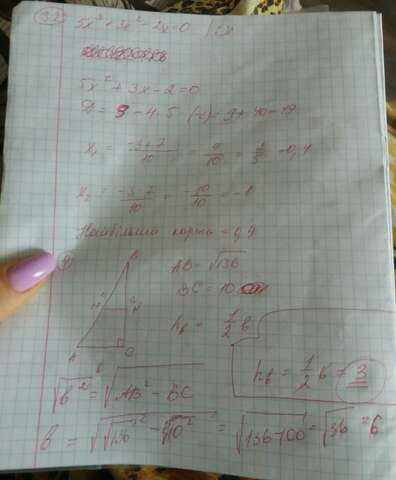 32) 5x³+3x²-2x=0 | :x
5x²+3x-2=0
D = 9-4·5·(-2)=9+40=49
x₁ = (-3+7)/10 = 4/10 = 2/5 = 0,4
x₂ = (-3-7)/10 = -10/10 = -1
Найбільша корінь = 0,4
B
AB = √136
BC = 10
M
N
A
C
b
hb = 1/2 b
hb = 1/2 b = 3
√b² = √AB² - BC
b = √√136² - √10² = √136-100 = √36 = 6